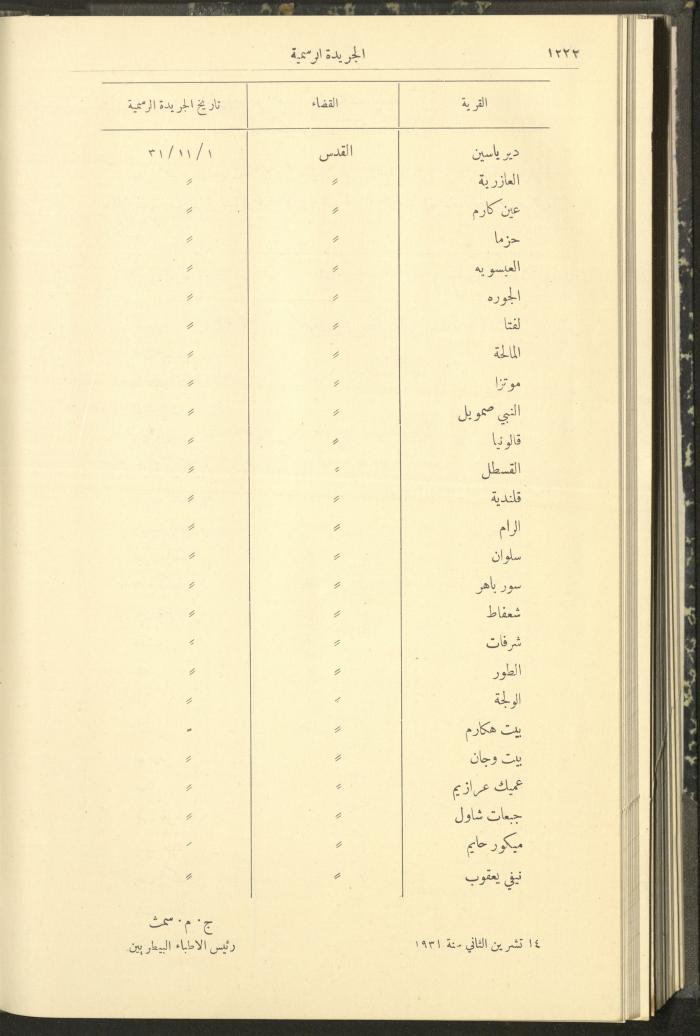 ١٢٢٢ الجريدة الرسمية
القرية القضاء تاريخ الجريدة الرسمية
دير ياسين القدس ٣١/١١/١
العازرية 〃 〃
عين كارم 〃 〃
حزما 〃 〃
العيسويه 〃 〃
الجوره 〃 〃
لفتا 〃 〃
المالحة 〃 〃
موتزا 〃 〃
النبي صمويل 〃 〃
قالونيا 〃 〃
القسطل 〃 〃
قلندية 〃 〃
الرام 〃 〃
سلوان 〃 〃
سور باهر 〃 〃
شعفاط 〃 〃
شرفات 〃 〃
الطور 〃 〃
الولجة 〃 〃
بيت هكارم 〃 〃
بيت وجان 〃 〃
عميك عرازيم 〃 〃
جبعات شاول 〃 〃
ميكور حايم 〃 〃
نيفي يعقوب 〃 〃
ج. م. سمث
١٤ تشرين الثاني سنة ١٩٣١ رئيس الاطباء البيطريين